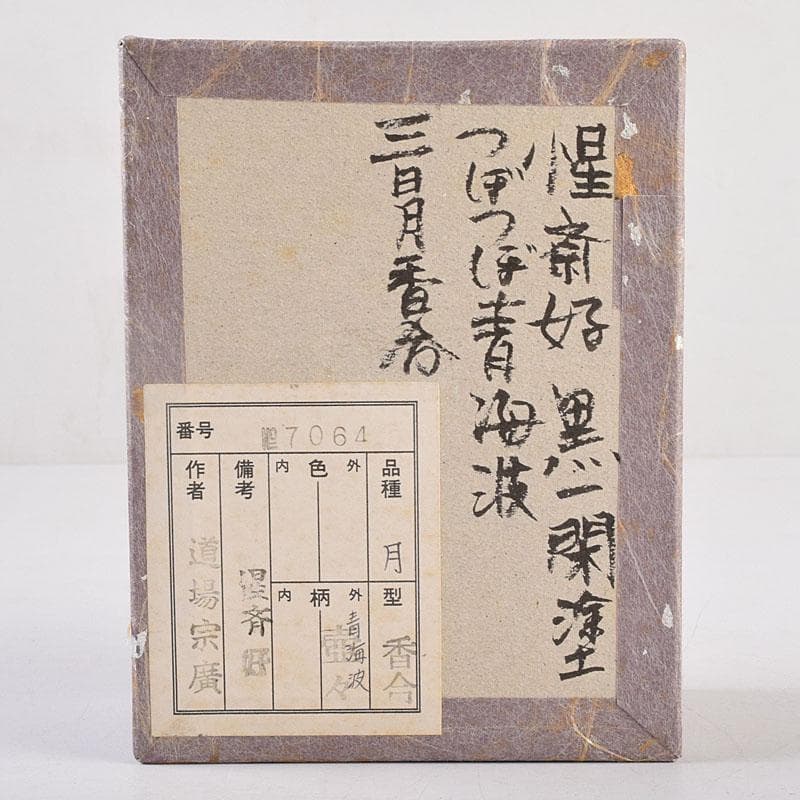 惺斎好 黒一閑塗
つぼつぼ青海波
三日月香合
番号 7064
品種 月
型 香合
外 色 内
外 柄 内
青海波
壷々
備考 惺斉好
作者 道場宗廣